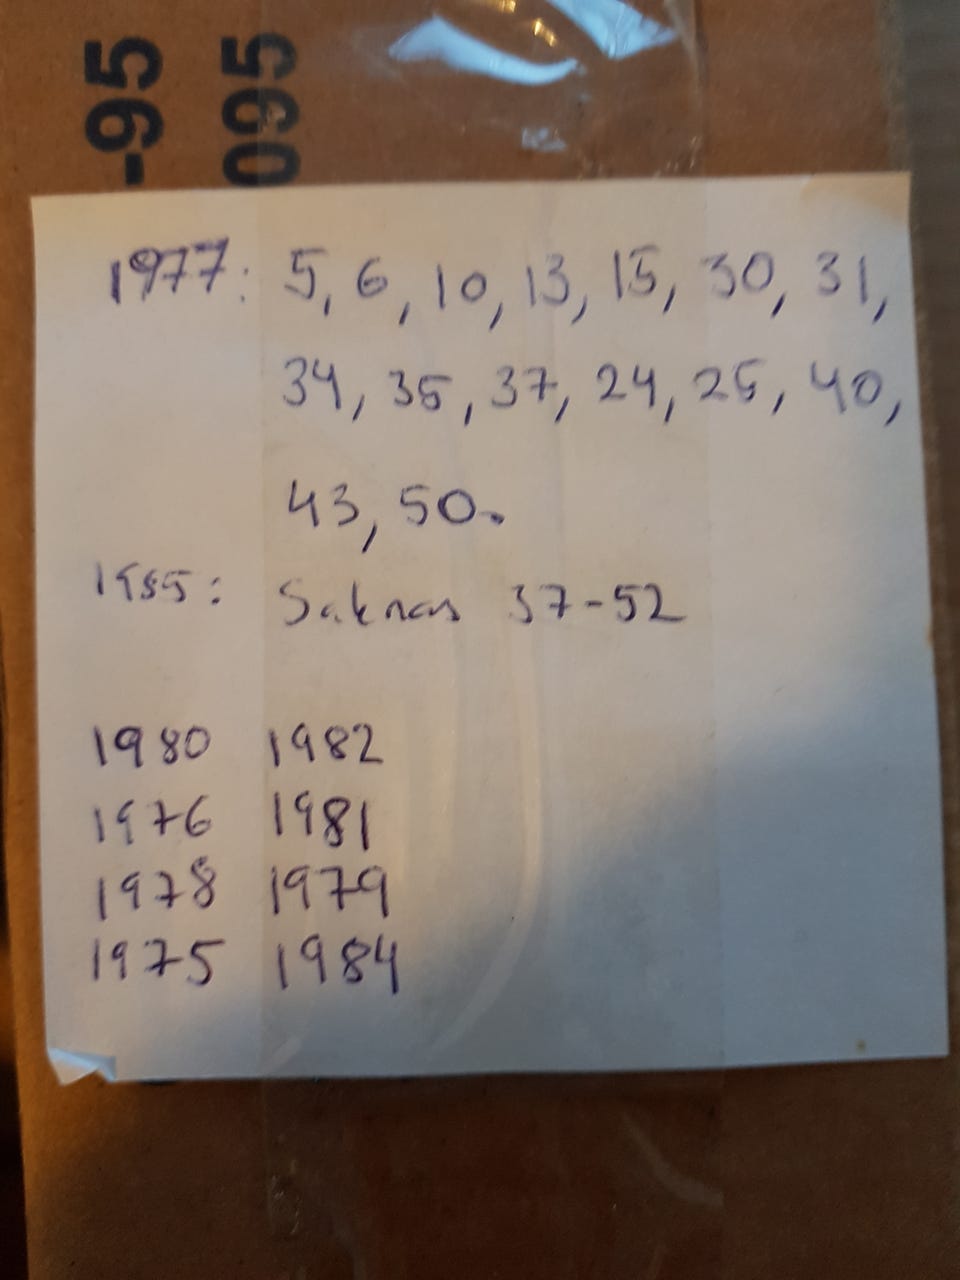 -95
095
1977: 5, 6, 10, 13, 15, 30, 31,
34, 35, 37, 24, 25, 40,
43, 50.
1985: Saknas 37-52
1980 1982
1976 1981
1978 1979
1975 1984